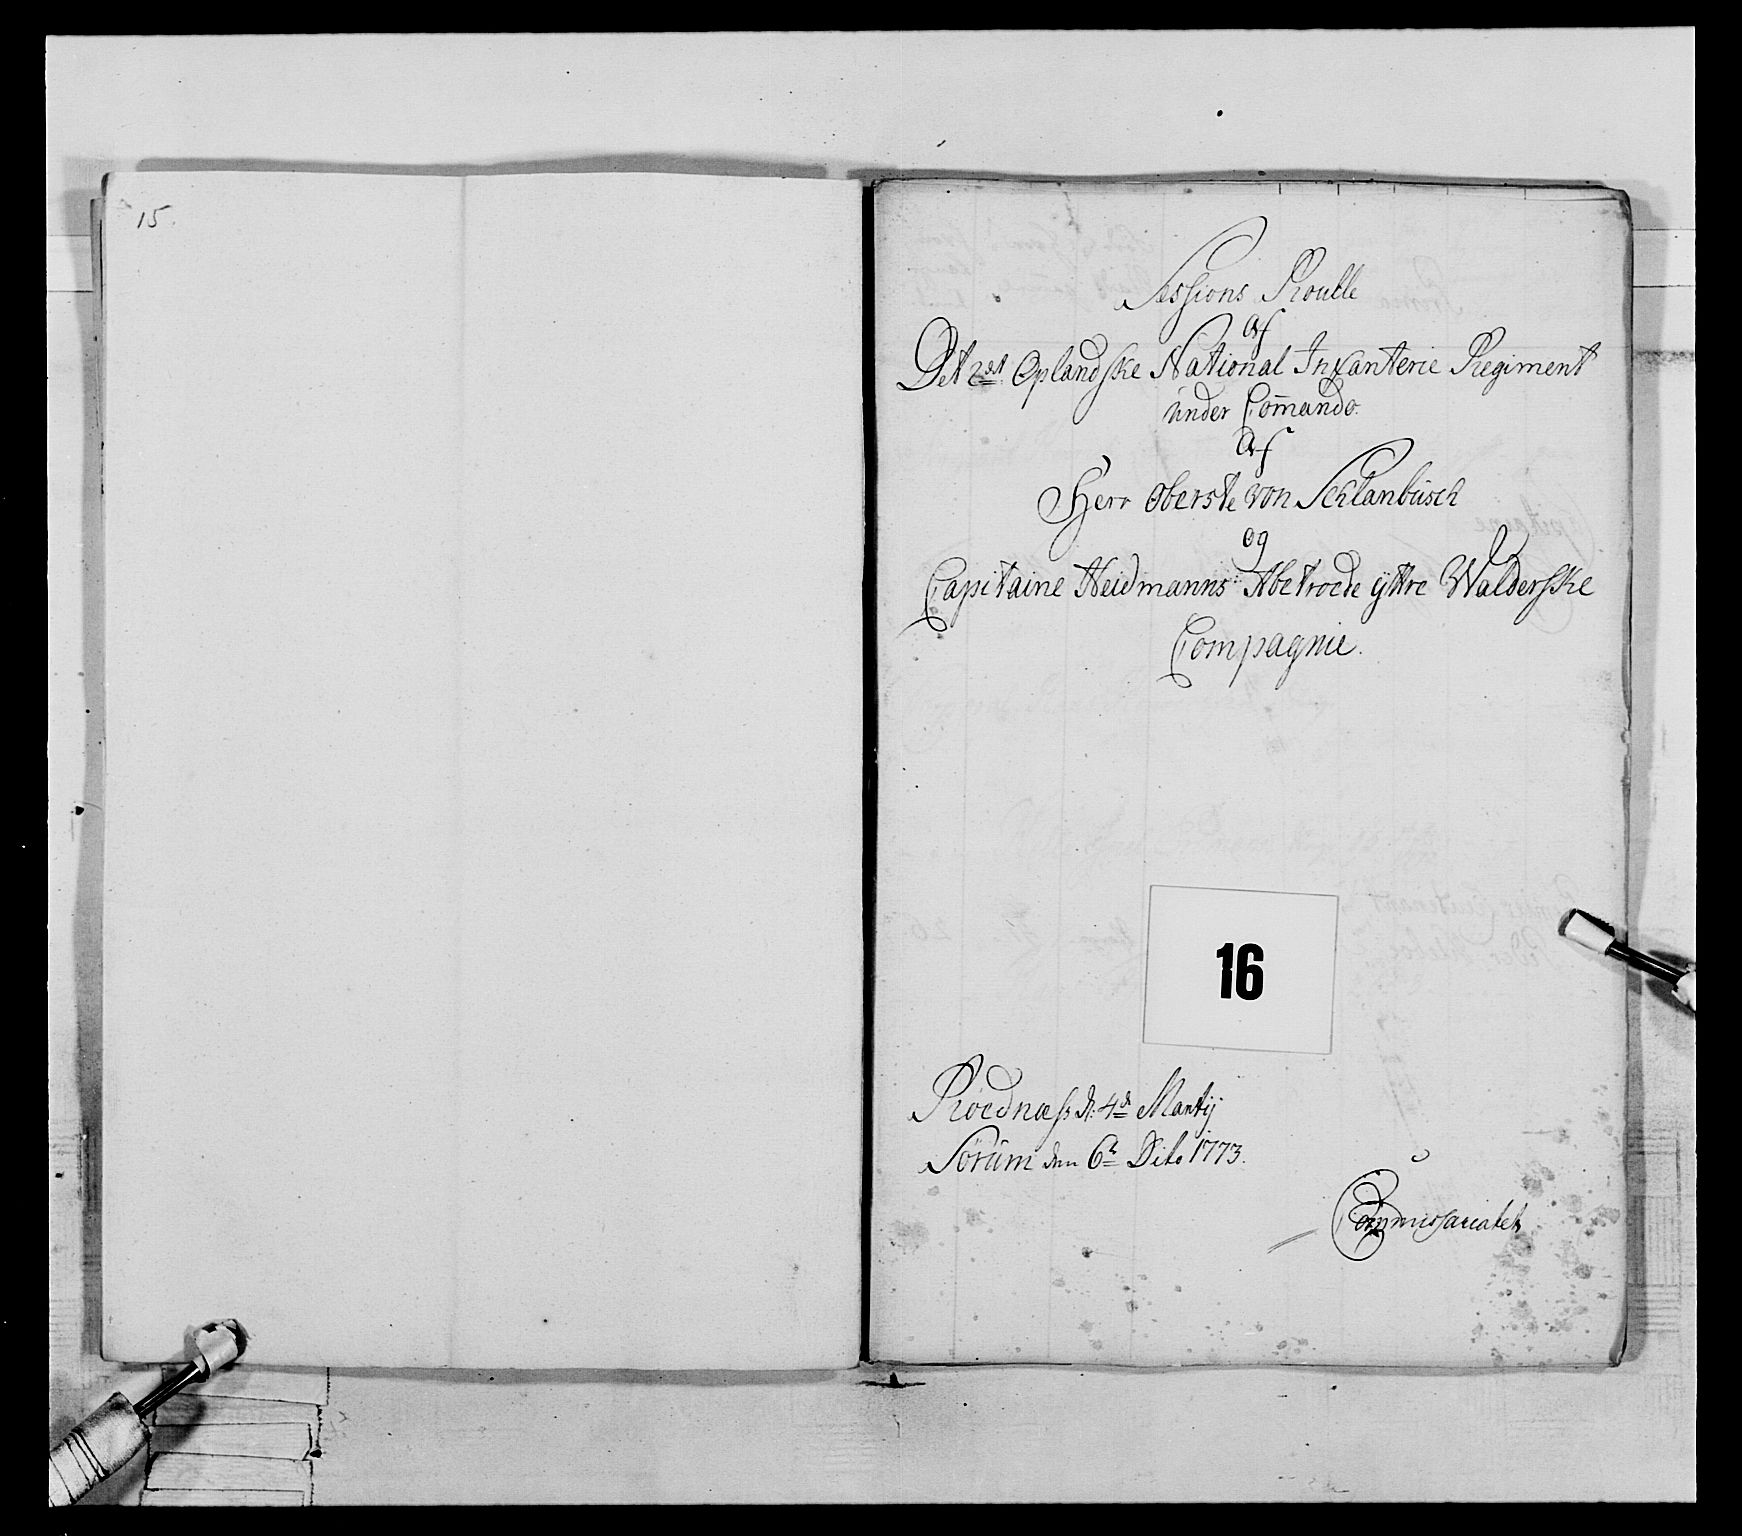 15.
Sessions Roulle
af
Det 2det Oplandske National Infanterie Regiment
under Com̄ando.
Af
Herr Oberste von Schlanbusch
og
Capitaine Heidmanns Abetroede ÿttre Walderske
Compagnie.
16
Roednæs d. 4de Martÿ
Sørum den 6te Dito 1773.
Commissariatet